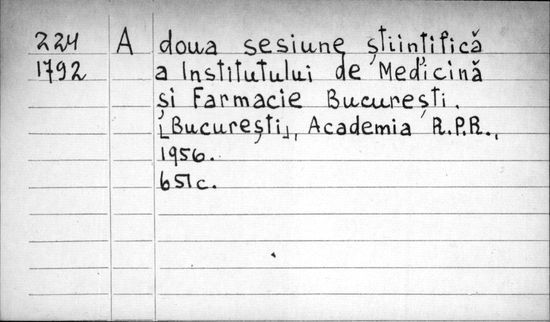 224 A două sesiune științifică
1792 a Institutului de Medicină
și Farmacie București.
[București], Academia R.P.R.,
1956.
651c.